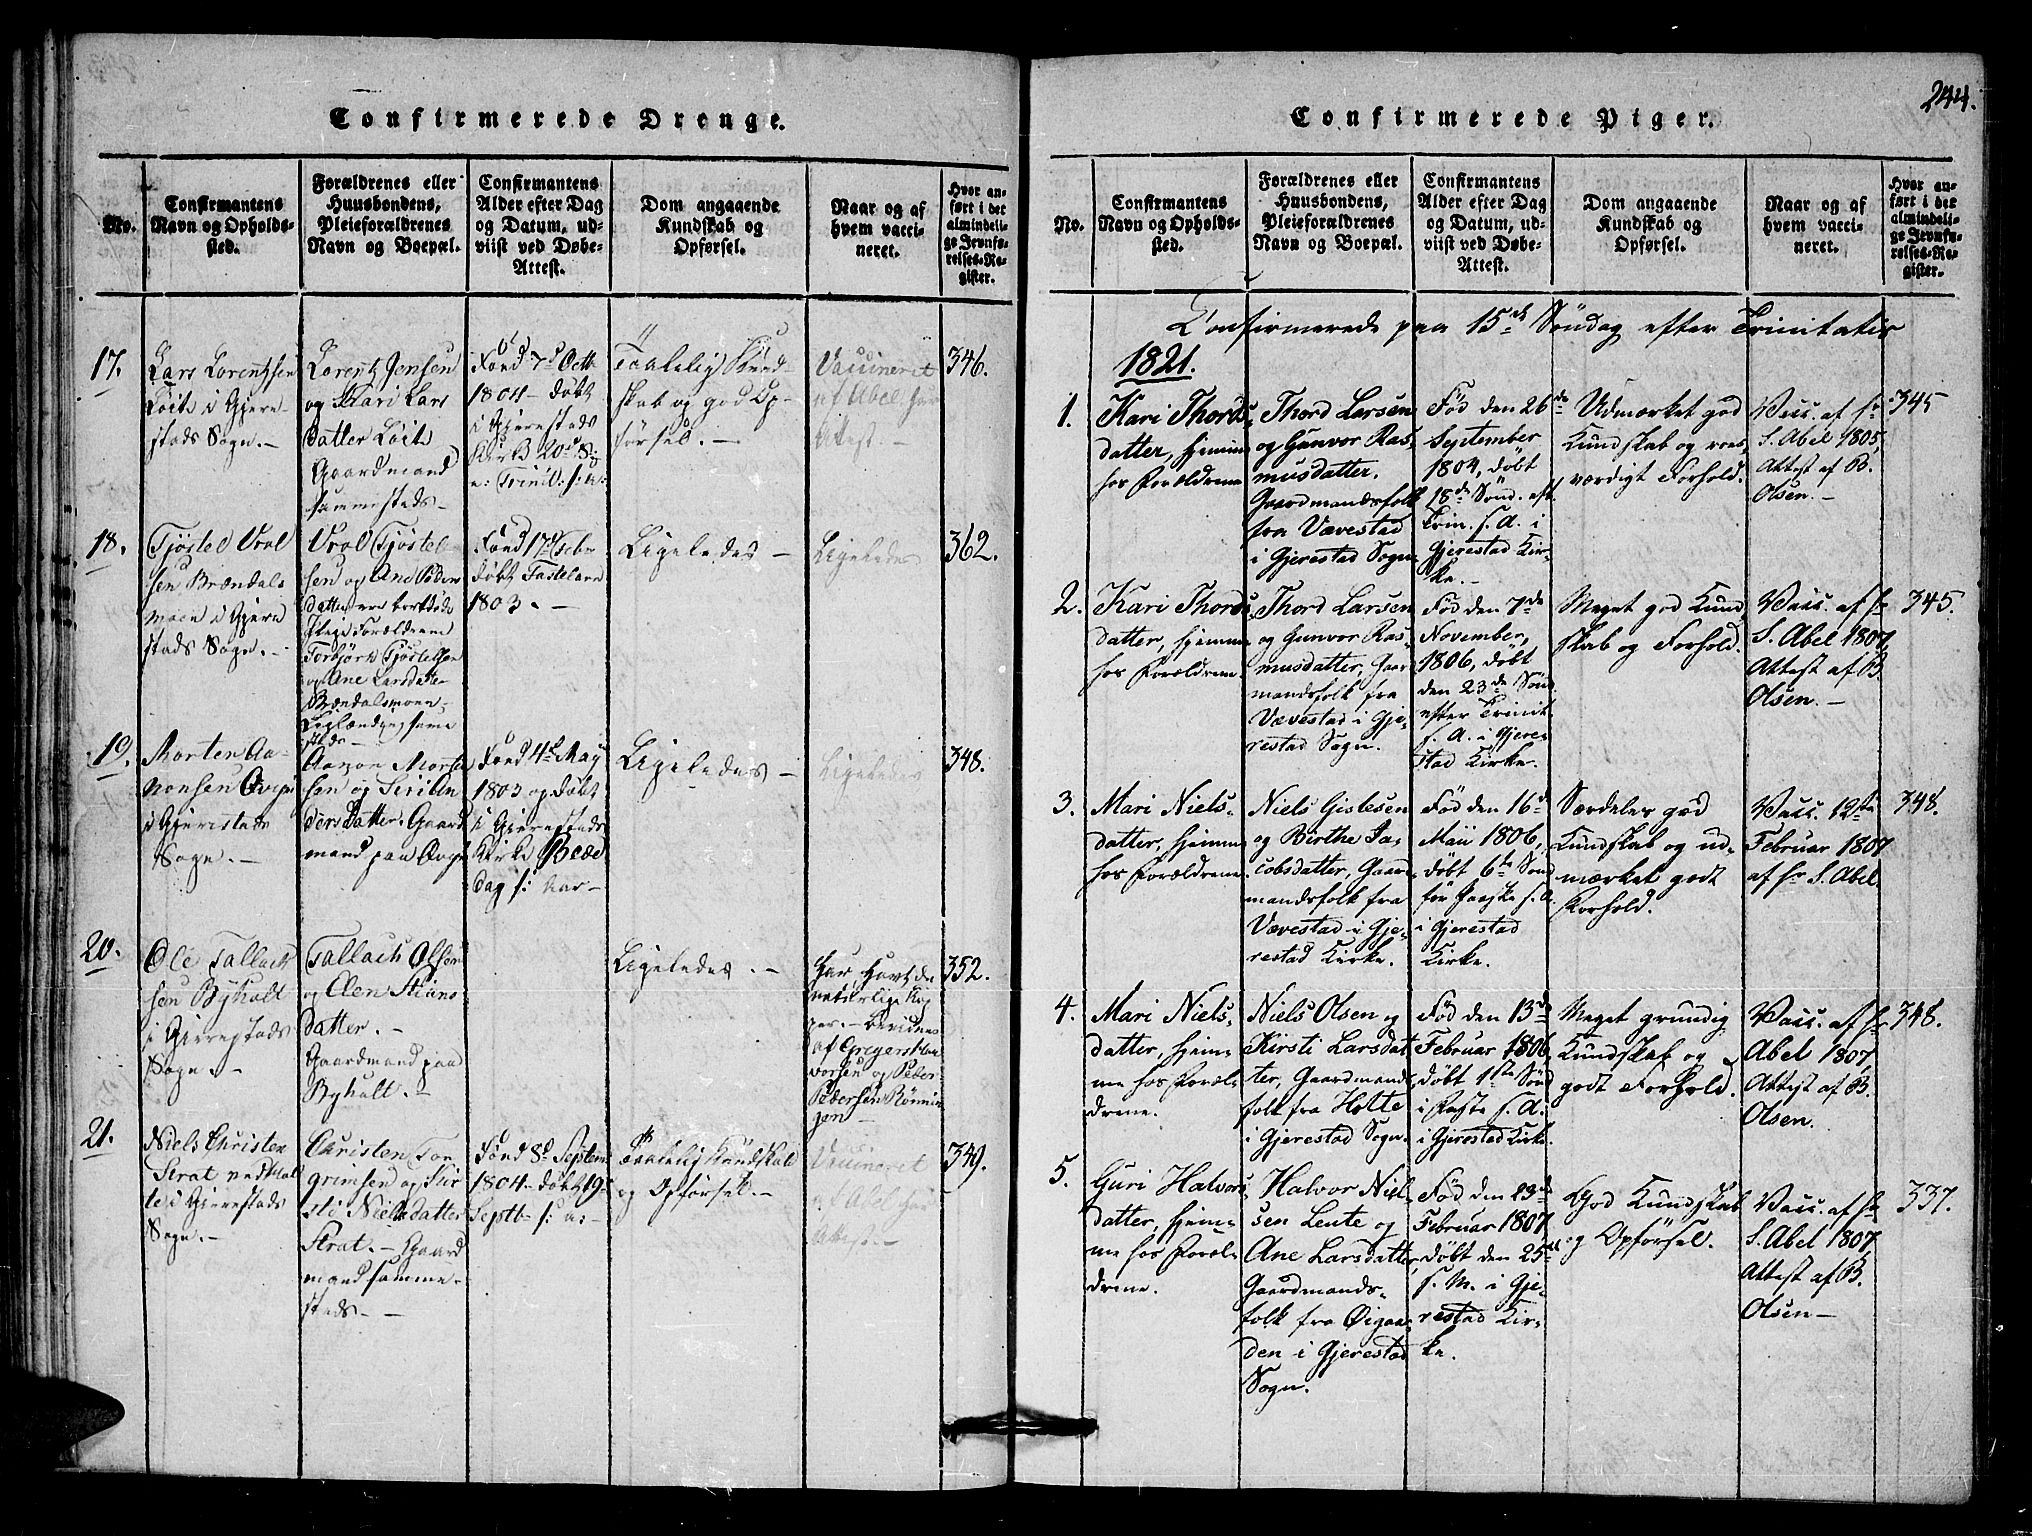 Confirmerede Drenge.
No.
Confirmantens
Navn og Opholds-
sted.
Forældrenes eller
Huusbondens,
Pleieforældrenes
Navn og Boepæl.
Confirmantens
Alder efter Dag
og Datum, ud-
viist ved Døbe-
Attest.
Dom angaaende
Kundskab og
Opførsel.
Naar og af
hvem vacci-
neret.
Hvor an-
ført i det
almindeli-
ge Jevnfø-
relses-Re-
gister.
17.
Lars Lorentsen
Löite i Gjere-
stads Sogn. -
Lorentz Jensen
og Kari Lars
datter Löite
Gaardmand
sammesteds -
Fönd 7d Octb
1804 - döbt
i Gjerestads
Kirke 20d S:
e: Trinit: s: a:
Taalelig Kund-
skab og god Op-
försel. -
Vaccineret
af Abel har
Attest -
346.
18.
Tjöstel Vrol
sen Brændals
moen i Gjere
stads Sogn. -
Vrol Tjöstel
sen og Ane Peders
datter
Pleie Forældrene
Torbjörn Tjöstelsen
og Ane Larsdatter
Brændalsmoen -
same
steds -
Fönd 17d Febr
döbt Fastelavn
1803. -
Ligeledes -
Ligeledes
362.
19.
Morten Aa-
nonsen
i Gjerestads
Sogn. -
Aanon Morten
sen og Siri An
ders Datter. Gaard
mand paa
Fönd 4d May
1803 og döbt
i Gjerestads
Kirke Bede
dag s: aar -
Ligeledes -
Ligeledes
348.
20.
Ole Tallach
sen Byholt
i Gjerestads
Sogn. -
Tallach Olsen
og Elen Stians
datter. -
Gaardmand paa
Byholt. -
Ligeledes. -
har havt de
naturlige Kop
per. - Bevidnes
af Gregers Hal
vorsen og Peder
Pedersen Rönnin
gen -
352.
21.
Niels Christen
Strat ved Hol
te i Gjerestads
Sogn. -
Christen Tor
grimsen og Kir
sti Nielsdatter
Strat. - Gaard
mand samme-
steds -
Fönd 8d Septem
1804 - döbt 19d
Septb - s: a: -
Taalelig Kundskab
og Opförsel. -
Vaccineret
af Abel har
Attest. -
349.
244.
Confirmerede Piger.
No.
Confirmantens
Navn og Opholds-
sted.
Forældrenes eller
Huusbondens,
Pleieforældrenes
Navn og Boepæl.
Confirmantens
Alder efter Dag
og Datum, ud-
viist ved Døbe-
Attest.
Dom angaaende
Kundskab og
Opførsel.
Naar og af
hvem vacci-
neret.
Hvor an-
ført i det
almindeli-
ge Jevnfø-
relses-Re-
gister.
Confirmerede paa 15de Söndag efter Trinitatis
1821.
1.
Kari Thords-
datter, hjemme
hos Forældrene
Thord Larsen
og Gunvor Ras-
musdatter.
Gaardmandsfolk
fra Vævestad
i Gjerestad Sogn
Föd den 26de
September
1804, döbt
18de Sönd. eft.
Trin. s. A. i
Gjerestad Kir-
ke. -
Udmærket god
Kundskab og roes-
værdigt Forhold.
Vacc. af Hr
S. Abel 1805,
Attest af B.
Olsen. -
345
2.
Kari Thords-
datter, hjemme
hos Forældrene
Thord Larsen
og Gunvor Ras-
musdatter, Gaar-
mandsfolk fra
Vævestad i Gje-
restad Sogn.
Föd den 7de
November,
1806, döbt
den 23de Sönd.
efter Trinit.
s. A. i Gjere-
stad Kirke.
Meget god Kund-
skab og Forhold.
Vacc. af Hr
S. Abel 1807,
Attest af B.
Olsen. -
345.
3.
Mari Niels-
datter, hjemme
hos Forældrene
Niels Gislesen
og Birthe Ja-
cobsdatter, Gaar-
mandsfolk fra
Vævestad i Gje-
restad Kirke.
Föd den 16de
Maii 1806,
döbt 6te Sönd
för Paaske s. A.
i Gjerestad
Kirke.
Særdeles god
Kundskab og ud-
mærket godt
Forhold.
Vacc. 12te
Februar 1807
af Hr S. Abel.
348.
4.
Mari Niels-
datter, hjem-
me hos Foræl-
drene.
Niels Olsen og
Kirsti Larsdat
ter, Gaardmands
folk fra Holte
i Gjerestad Sogn.
Föd den 13de
Februar 1806,
döbt 1ste Sönd
i Faste s. A.
i Gjerestad Kirke.
Meget grundig
Kundskab og
godt Forhold.
Vacc. af Hr
Abel 1807,
Attest af B.
Olsen.
348.
5.
Guri Halvors-
datter, hjem-
me hos Foræl-
drene.
Halvor Niel-
sen Lente og
Ane Larsdatter,
Gaardmands-
folk fra Öigaar-
den i Gjerestad
Sogn.
Föd den 23de
Februar 1807,
döbt den 25de
s. M. i Gje-
restad Kir-
ke.
God Kundskab
og Opförsel.
Vacc. af Hr
S. Abel 1807,
Attest af B.
Olsen -
337.